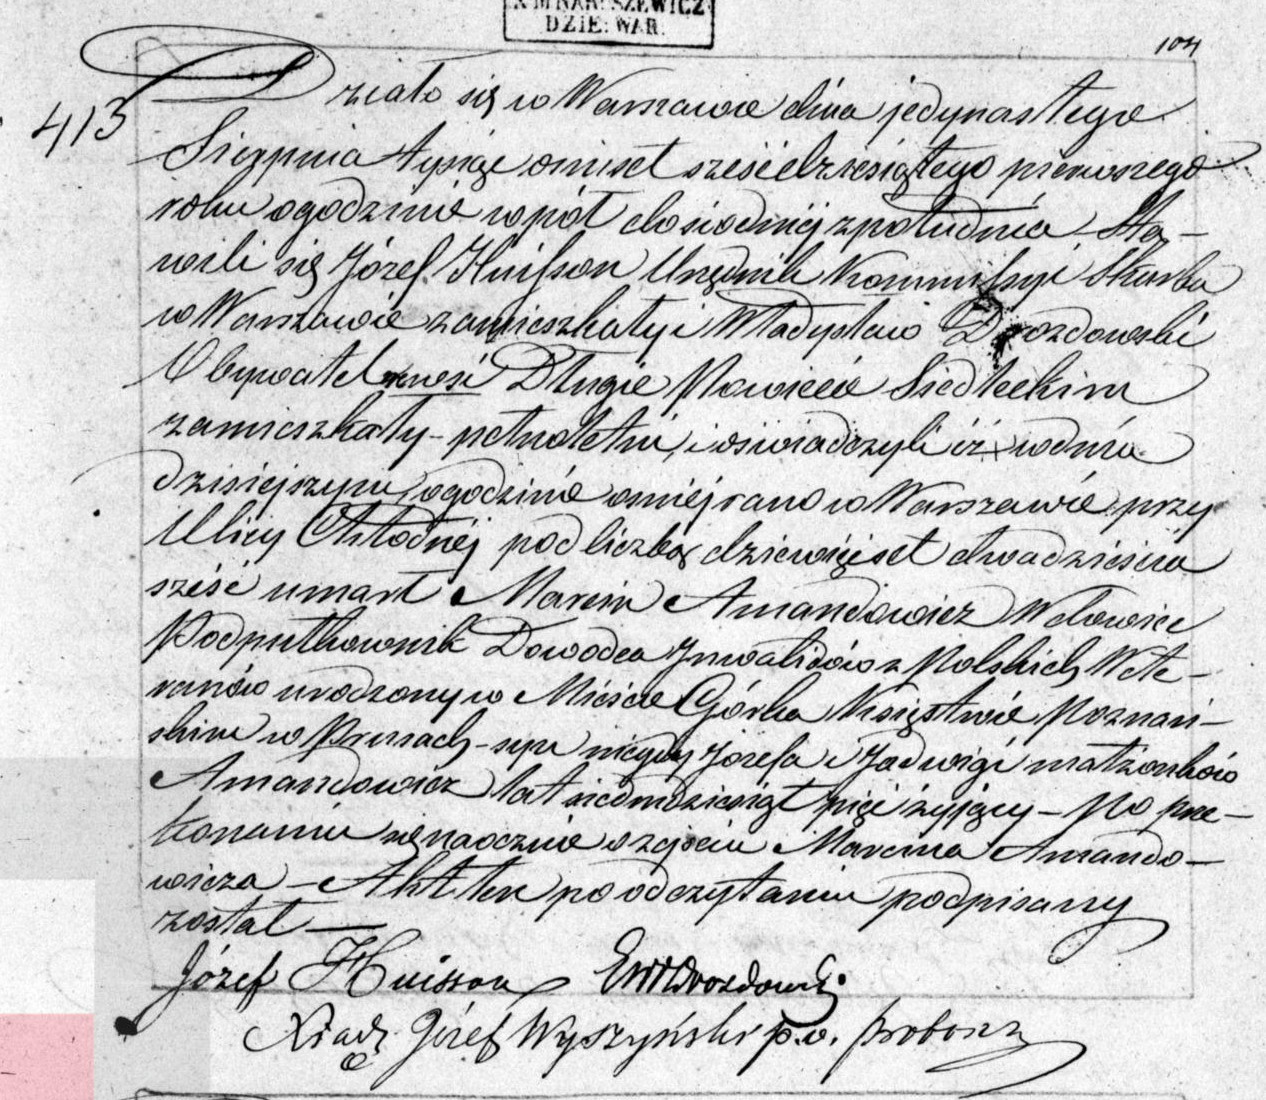 X M NARUSZEWICZ
DZIE: WAR.
104
413
Działo się w Warszawie dnia jedynastego
Sierpnia tysiąc ośmset sześćdziesiątego pierwszego
roku o godzinie wpół do siódmej z południa Sta-
wili się Józef Huisson Urzędnik Kommissyi Skarbu
w Warszawie zamieszkały i Władysław Drozdowski
Obywatel wsi Długie Powiecie Siedleckim
zamieszkały - pełnoletni, i oświadczyli iż w dniu
dzisiejszym, o godzinie ósmej rano w Warszawie przy
Ulicy Chłodnej pod liczbą dziewięćset dwadzieścia
sześć umarł Marcin Amandowicz Wdowiec
Podpułkownik Dowódca Inwalidów z Polskich Wete-
ranów urodzony w Mieście Górka Księstwie Poznań-
skim w Prusach - syn niegdy Józefa i Jadwigi małżonków
Amandowicz lat siedmdziesiąt pięć żyjący - Po prze-
konaniu się naocznie o zejściu Marcina Amando-
wicza - Akt ten po odczytaniu podpisany
został —
Józef Huisson Drozdowski
Xiądz Józef Wyszyński p.o. Probosz